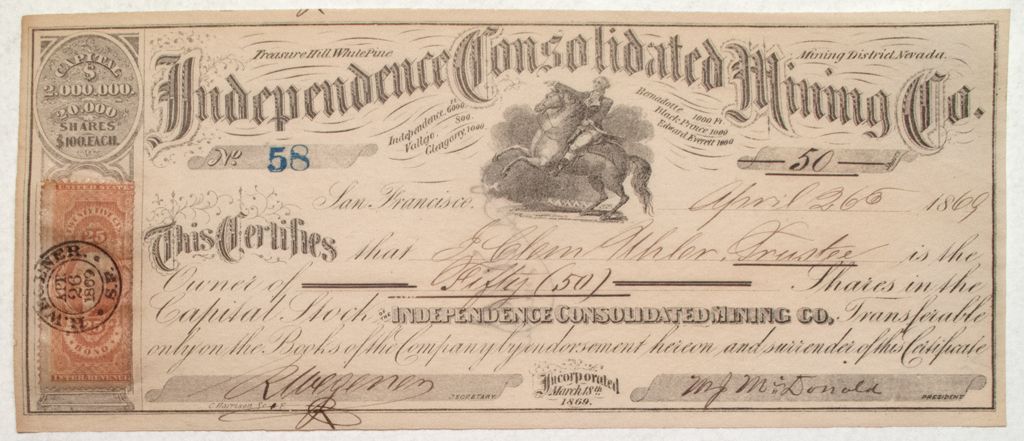 CAPITAL
$
2.000.000.
20.000
SHARES
$100.EACH.
Treasure Hill, White Pine
Mining District, Nevada.
Independence Consolidated Mining Co.
Independence. 6000. ft
Vallejo. 800.
Glengarry. 1000
Bernadotte 1000 Ft
Black-Prince 1000
Edward Everett 1000
No. 58
50
San Francisco. April 26th 1869
This Certifies that J. Clem Uhler, Trustee is the
Owner of Fifty (50) Shares in the
Capital Stock OF THE INDEPENDENCE CONSOLIDATED MINING CO, Transferable
only on the Books of the Company by endorsement hereon and surrender of this Certificate
R. Wegener
SECRETARY.
Incorporated
March 18th
1869.
W J McDonald
PRESIDENT
UNITED STATES
25
R. WEGENER.
AP
26
1869
S.F.
BOND
INTER. REVENUE